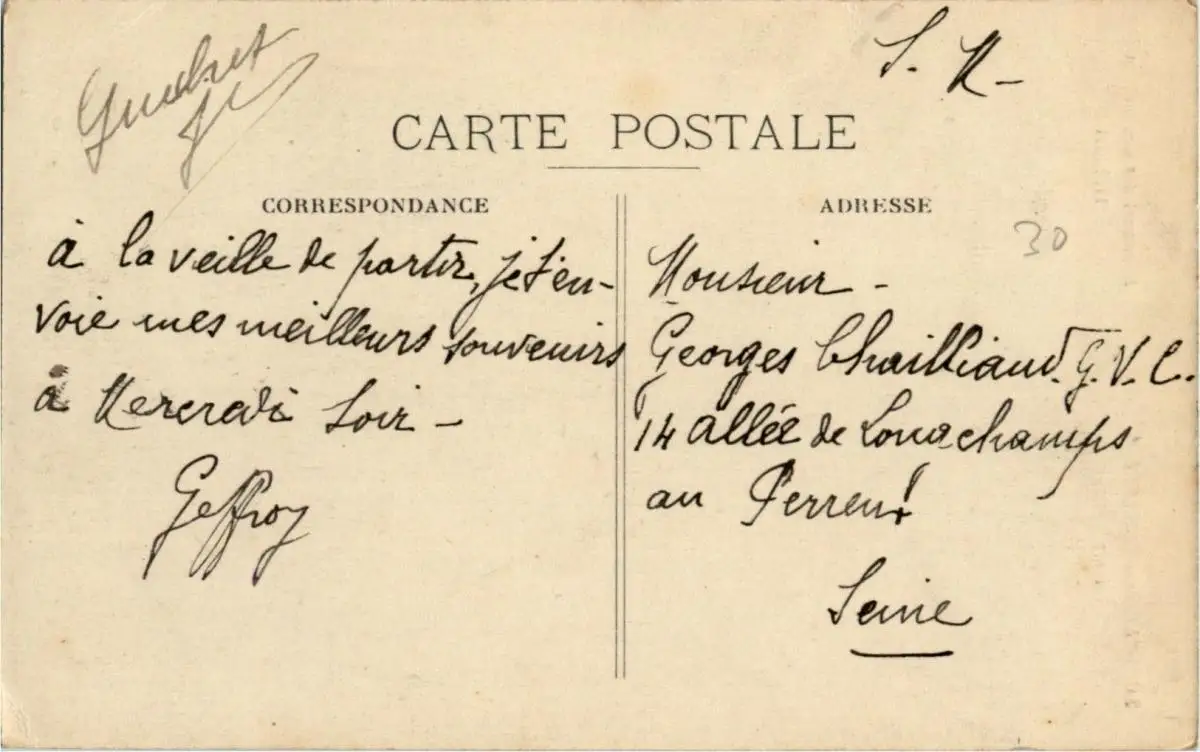 S. M-
CARTE POSTALE
CORRESPONDANCE
à la veille de partir, je t'en-
voie mes meilleurs souvenirs
à Mercredi soir -
Geffroy
ADRESSE
30
Monsieur -
Georges Chailliaud. G. V. C.
14 allée de Longchamps
au Perreux
Seine